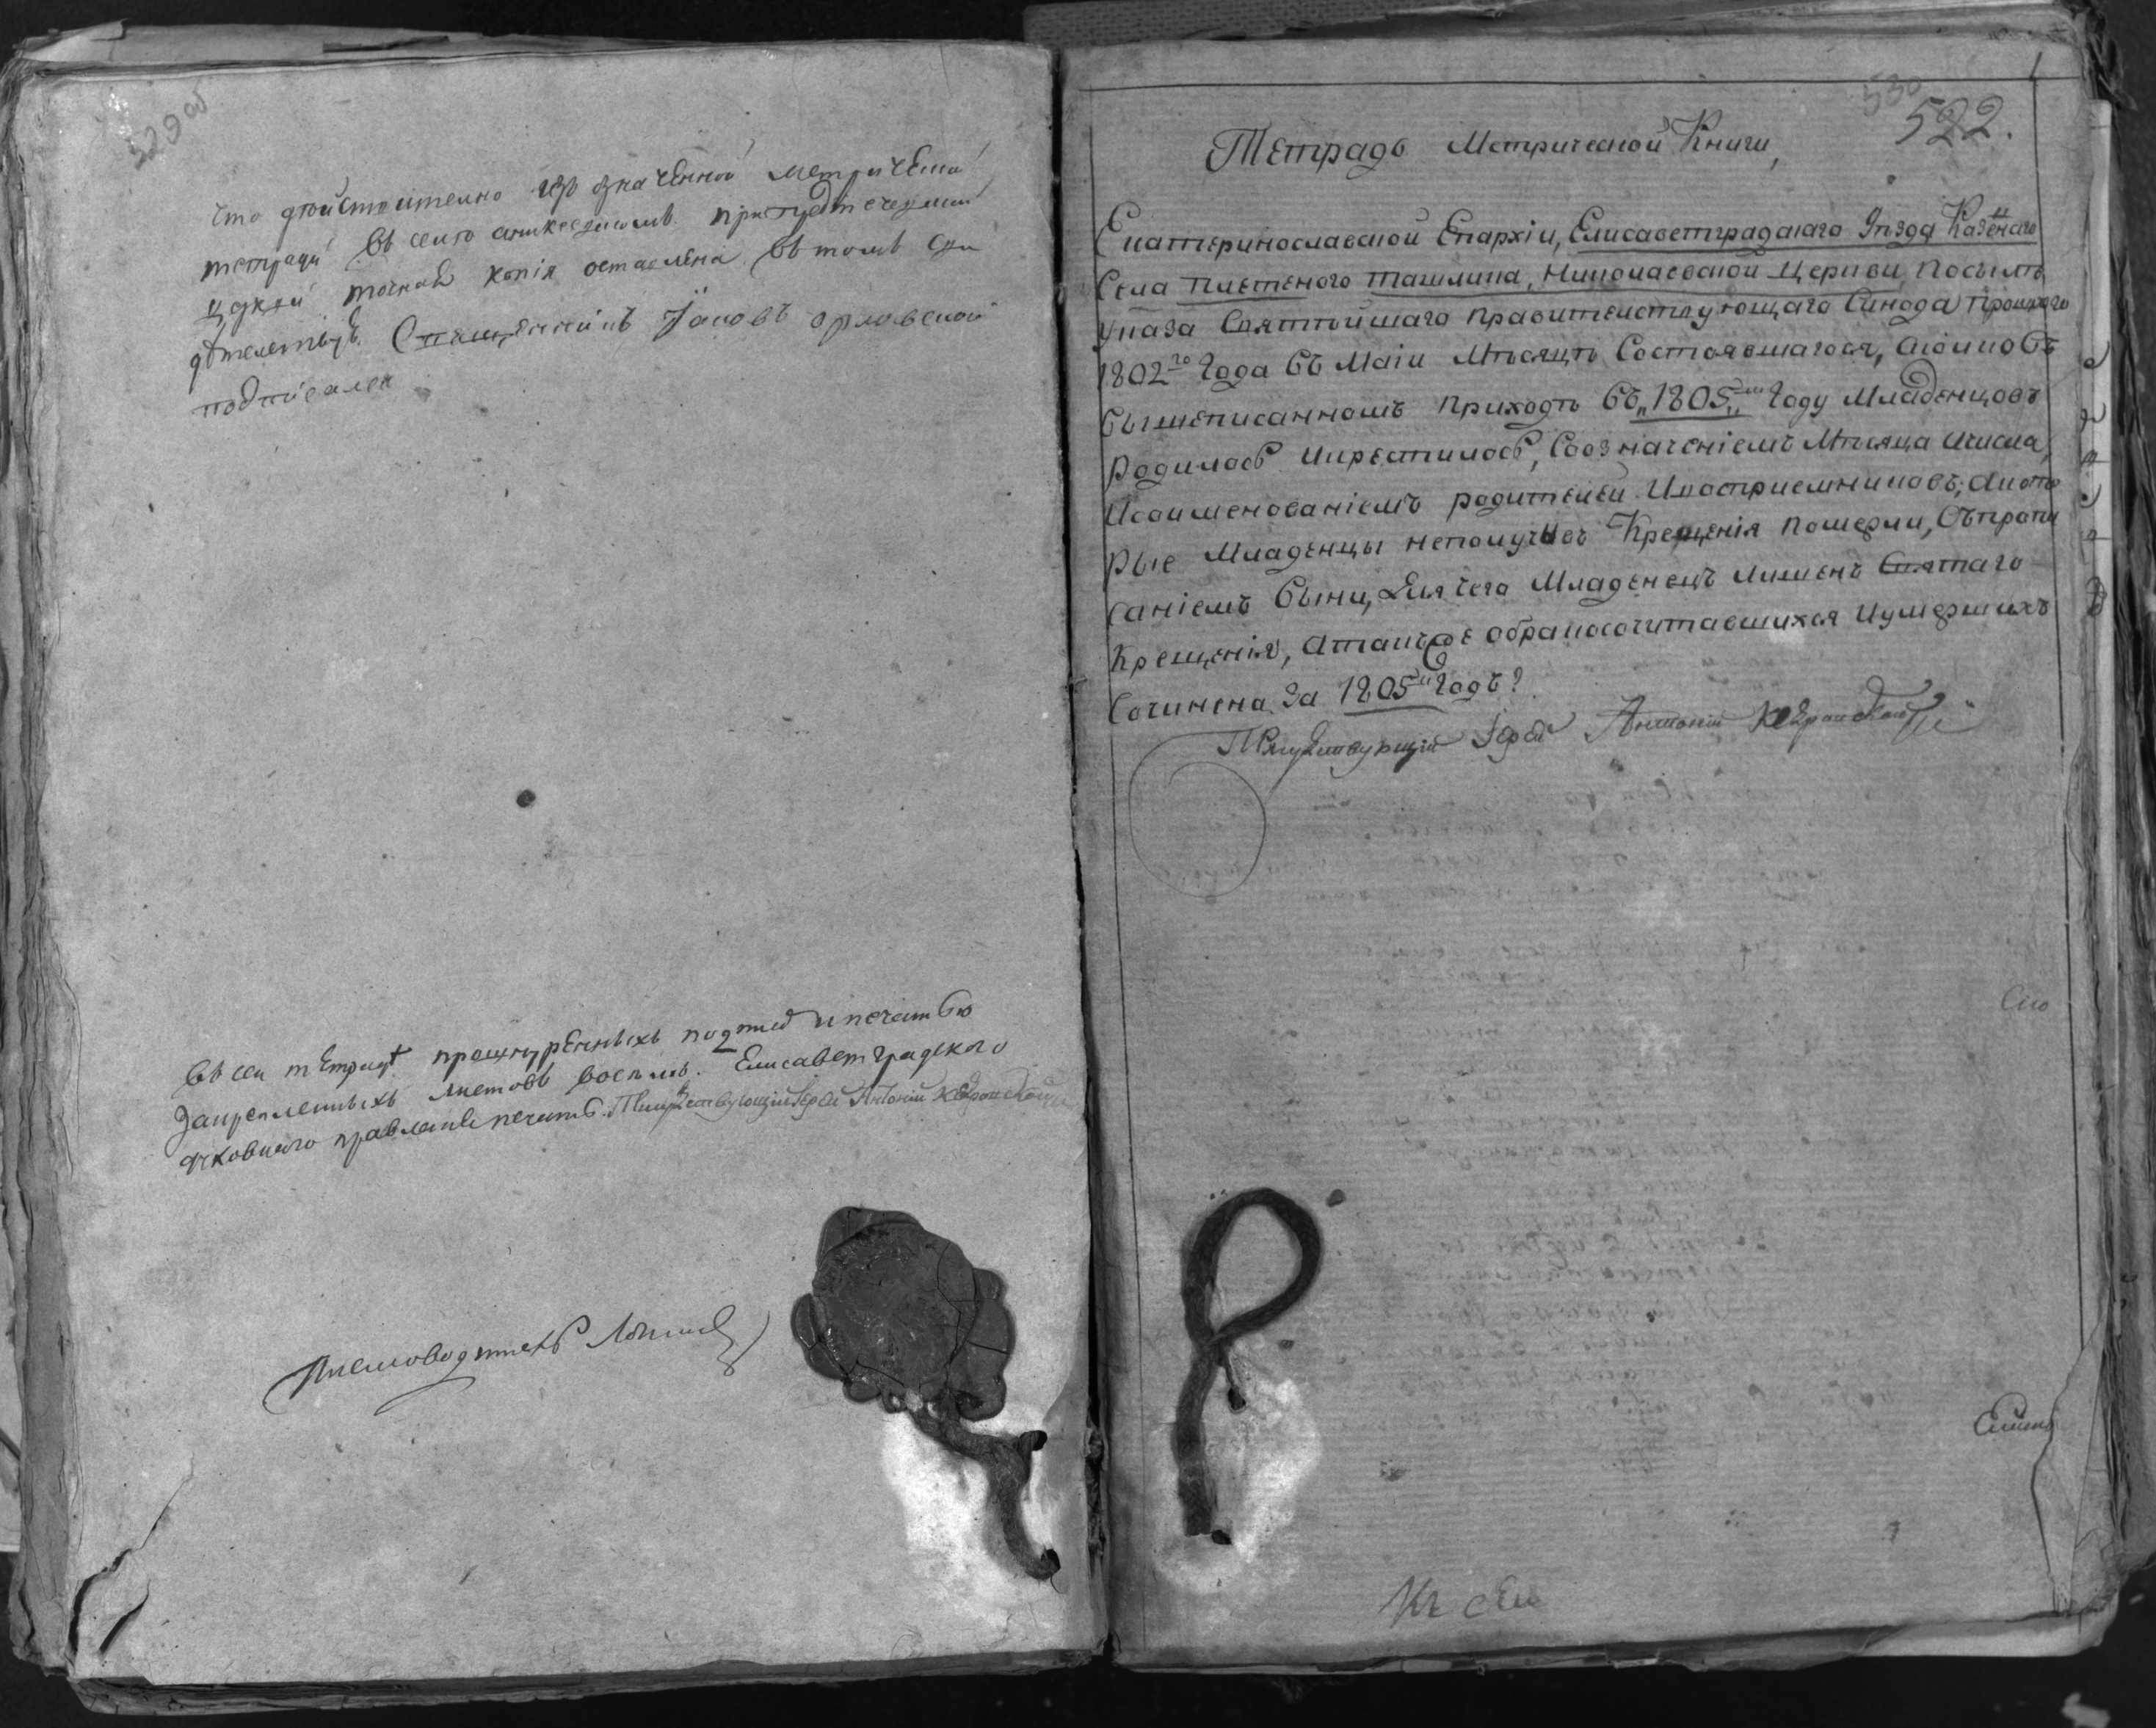 529 об
что действително изъ означенной метрической
тетради въ сей
церкви точная копія оставлена въ томъ сви
дѣтелствуя Священникъ Іаковъ Орловской
подписался
въ сей тетради прошнуренныхъ подписю и печатью
закрепленныхъ листовъ восемь. Елисаветградского
духовного правления печать. Присудствующій Іерей Антоній
Писмоводитель
1
530
522.
Тетрадь Метрической Книги,
Екатеринославской Епархіи, Елисаветградскаго Уѣзда Казеннаго
Села Плетеного Ташлика, Николаевской Церкви, Посилѣ
указа Святѣйшаго Правителствующаго Синода прошлого
1802го Года въ Маіи Мѣсяцѣ Состоявшагося, сколко въ
вышеписанномъ приходѣ въ „1805„м Году Младенцовъ
родилось икрестилось, Созначеніемъ Мѣсяца ичисла,
Исоименованіемъ родителей Ивосприемниковъ; Акото
рые Младенцы неполучивъ Крещенія померли, Съпропи
саніемъ Вины, Для чего Младенецъ лишенъ Святаго
Крещенія, Атакъже обракосочитавшихся Иумершихъ
Сочинена За 1805й Годъ?
Присудствующій Іерей Антоній